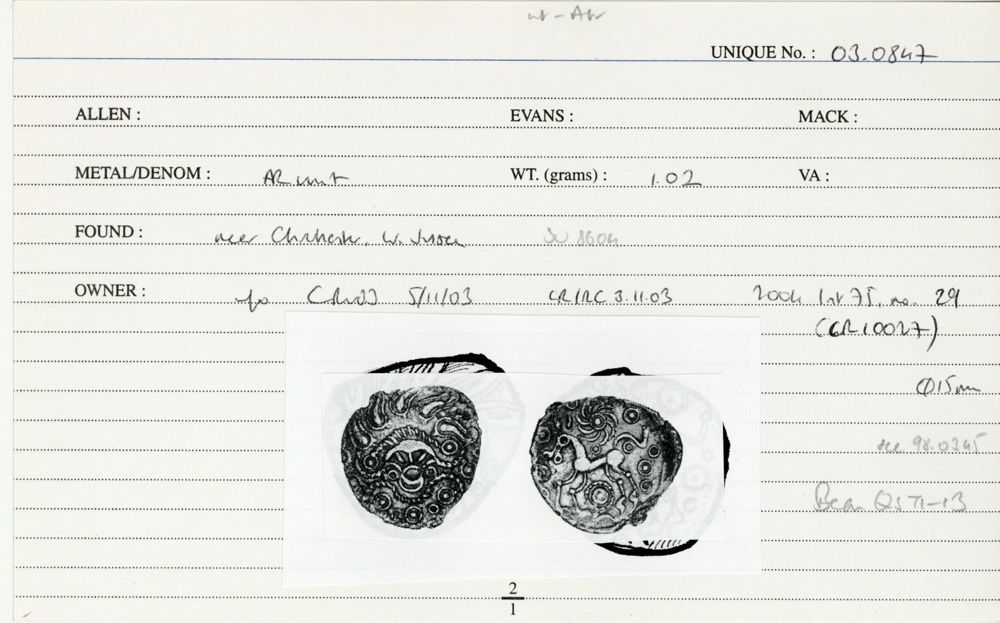 UNIQUE No. : 03.0847
ALLEN : EVANS : MACK :
METAL/DENOM : AR unit WT. (grams) : 1.02 VA :
FOUND : near Chichester, W. Sussex SU 8604
OWNER : 5/11/03 CR/RC 3.11.03 2004 29
(CR10027)
Φ15mm
see 98.0345
Bean
2
1